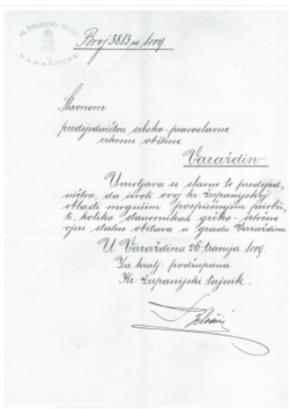 KR. ŽUPANIJSKA OBLAST
U VARAŽDINU
Broj 3813 ex 1009.
Slavnom
predsjedničtvu srbsko-pravoslavne
crkvene obćine
Varaždin
Umoljava se slavno to predsjed-
ničtvo, da izvoli ovoj kr. županijskoj
oblasti mogućim pospješenjem
te, koliko stanovnikah grčko-iztočne
vjere stalno obitava u gradu Varaždinu.
U Varaždinu 26. travnja 1009.
Za kralj. podžupana
Kr. županijski tajnik.